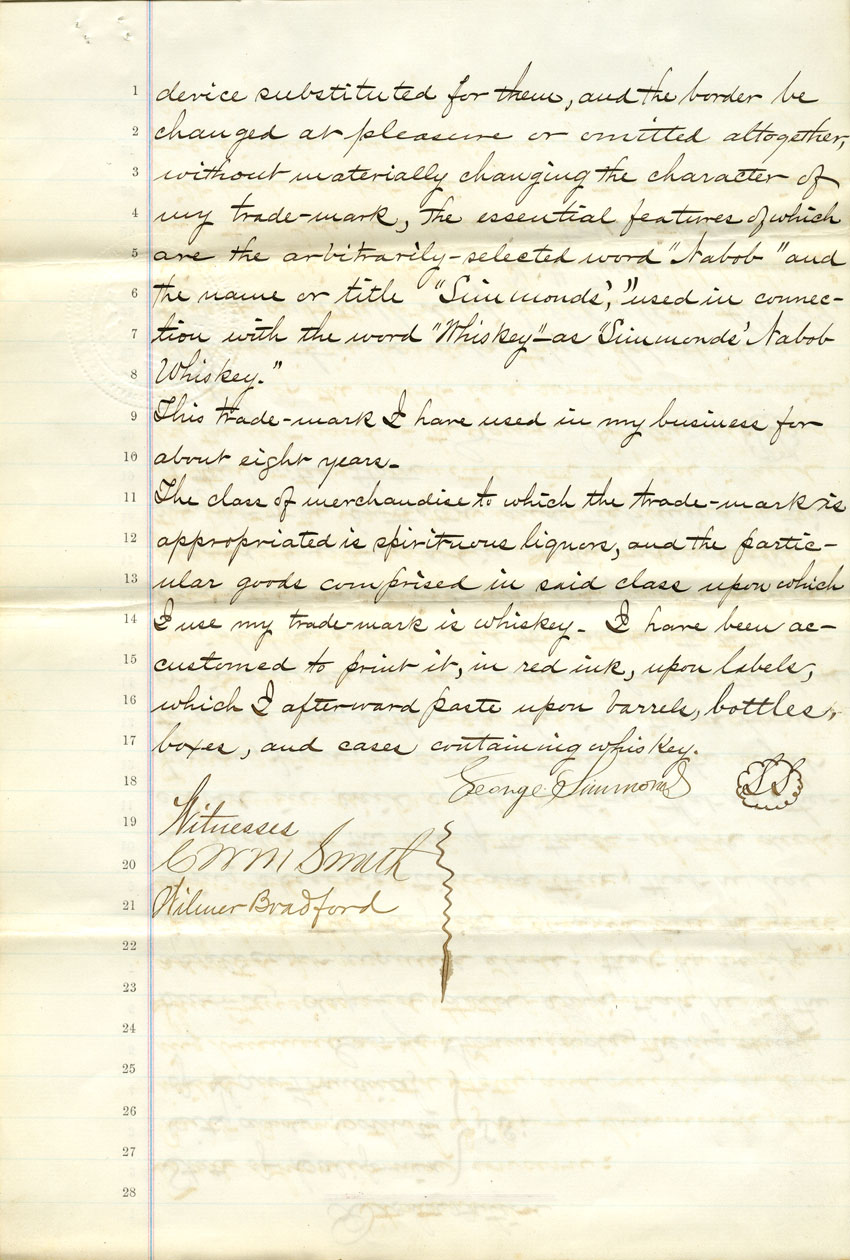 1 device substituted for them, and the border be
2 changed at pleasure or omitted altogether,
3 without materially changing the character of
4 my trade-mark, the essential features of which
5 are the arbitrarily-selected word "Nabob" and
6 the name or title "Simmonds'," used in connec-
7 tion with the word "Whiskey"—as "Simmonds' Nabob
8 Whiskey."
9 This trade-mark I have used in my business for
10 about eight years.
11 The class of merchandise to which the trade-mark is
12 appropriated is spirituous liquors, and the partic-
13 ular goods comprised in said class upon which
14 I use my trade-mark is whiskey. I have been ac-
15 customed to print it, in red ink, upon labels,
16 which I afterward paste upon barrels, bottles,
17 boxes, and cases containing whiskey.
18 George Simmonds
19 Witnesses
20 C W M Smith
21 Wilmer Bradford
22
23
24
25
26
27
28